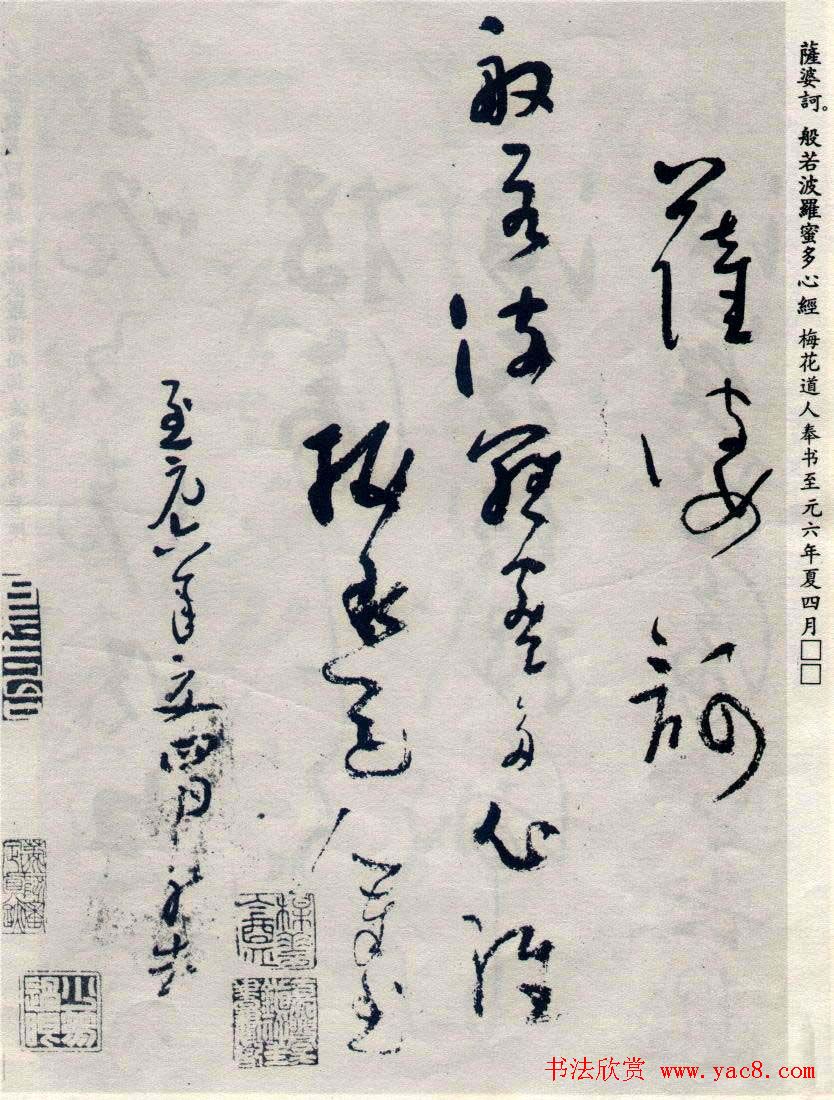 薩婆訶。般若波羅蜜多心經 梅花道人奉书至元六年夏四月□□
薩婆訶
般若波羅蜜多心經
梅花道人奉书
至元六年夏四月
书法欣赏 www.yac8.com